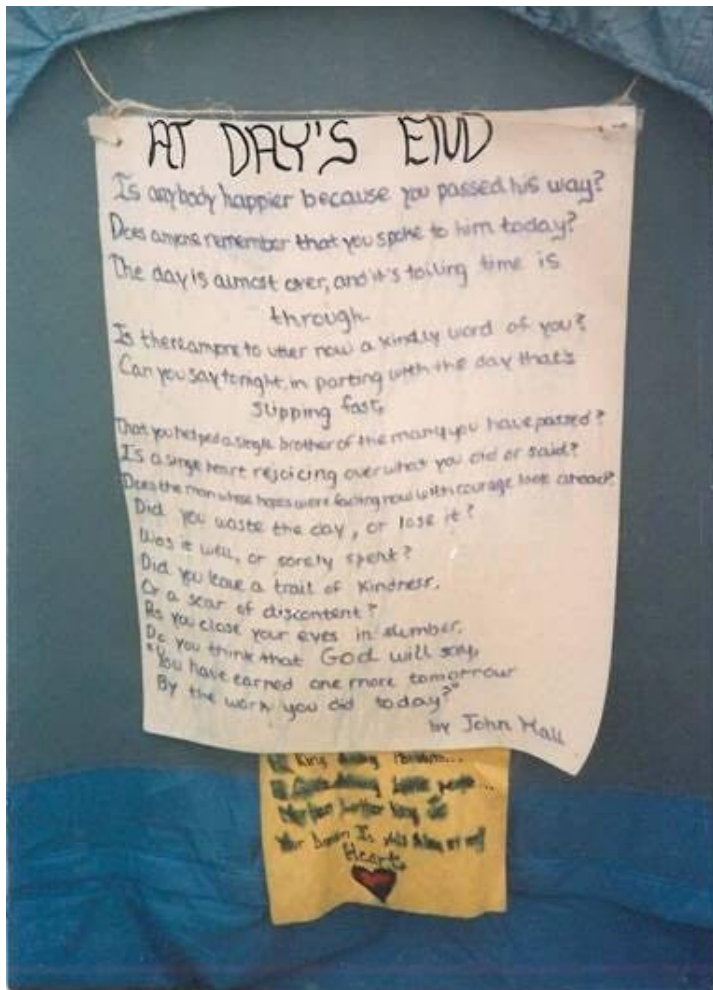 AT DAY'S END
Is anybody happier because you passed his way?
Does anyone remember that you spoke to him today?
The day is almost over, and it's toiling time is
through.
Is there anyone to utter now a kindly word of you?
Can you say tonight, in parting with the day that's
slipping fast,
That you helped a single brother of the many you have passed?
Is a single heart rejoicing over what you did or said?
Does the man whose hopes were fading now with courage look ahead?
Did you waste the day, or lose it?
Was it well, or sorely spent?
Did you leave a trail of kindness,
Or a scar of discontent?
As you close your eyes in slumber,
Do you think that God will say,
"You have earned one more tomorrow
By the work you did today?"
by John Hall
King
King
Is still
Heart